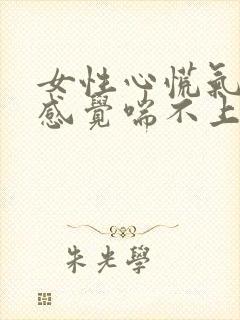 女性心慌氣
感覺喘不上
朱光學